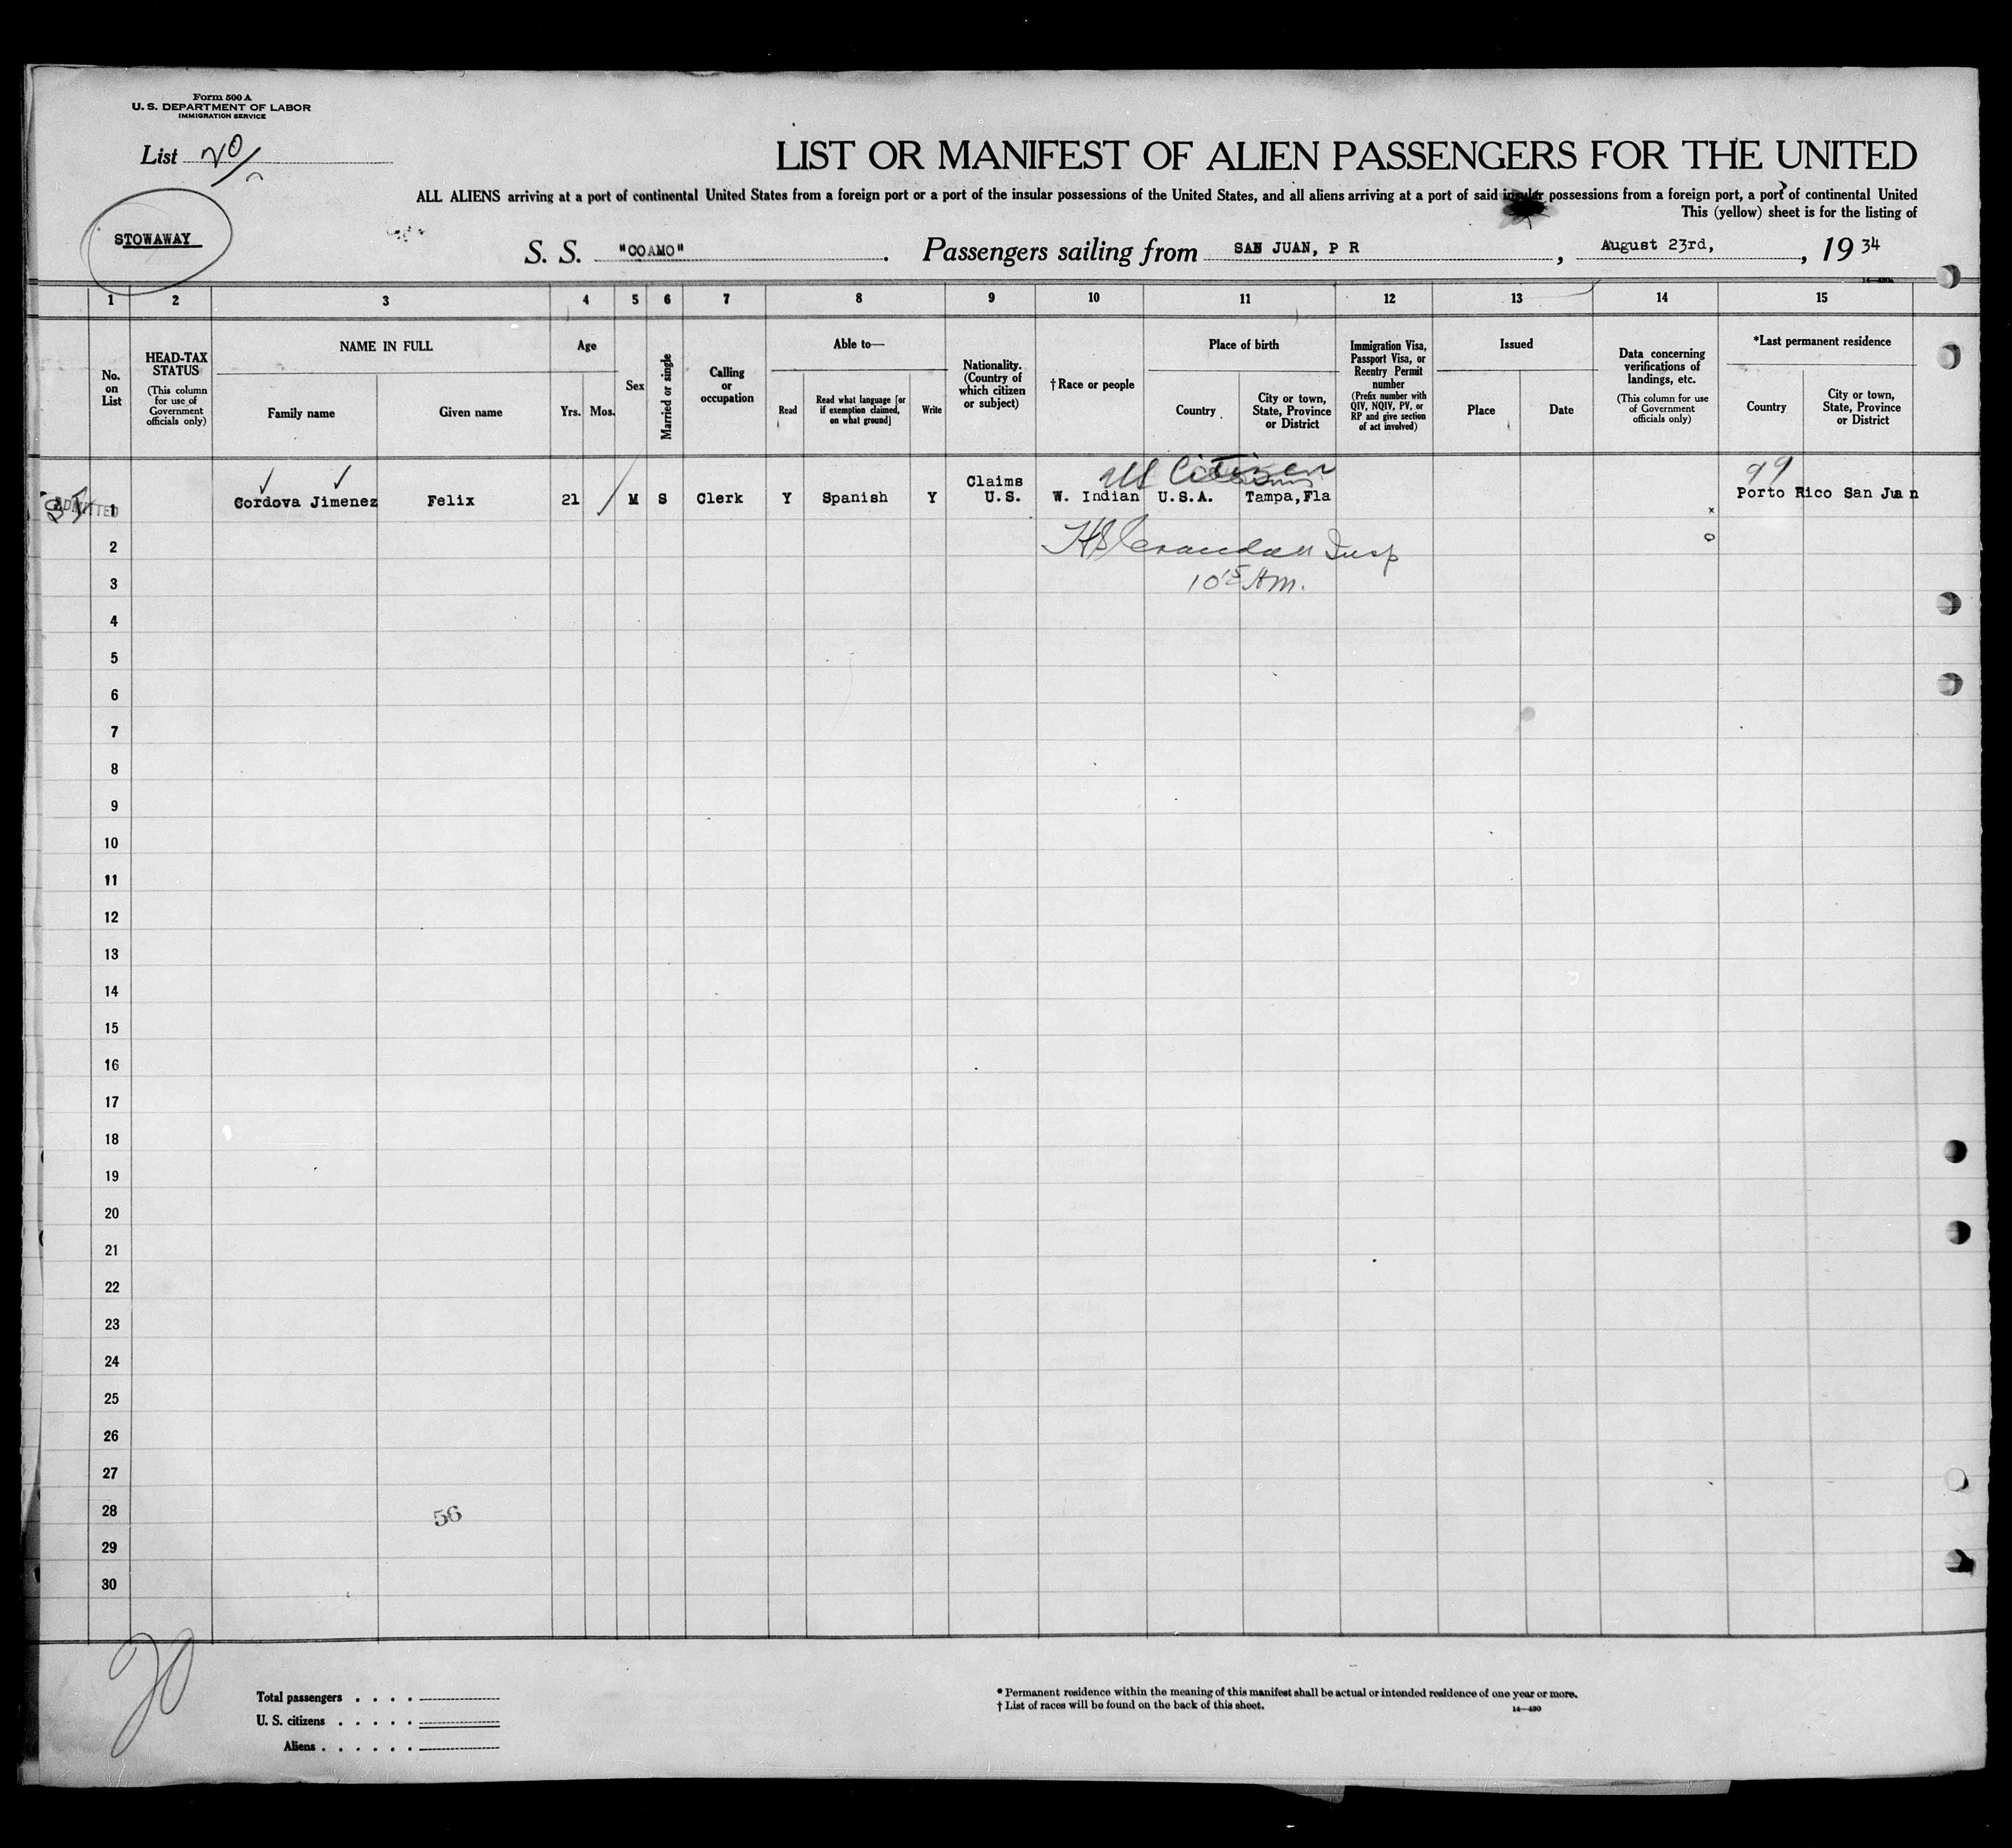 Form 500 A
U. S. DEPARTMENT OF LABOR
IMMIGRATION SERVICE
List 20
LIST OR MANIFEST OF ALIEN PASSENGERS FOR THE UNITED
ALL ALIENS arriving at a port of continental United States from a foreign port or a port of the insular possessions of the United States, and all aliens arriving at a port of said insular possessions from a foreign port, a port of continental United
This (yellow) sheet is for the listing of
STOWAWAY
S. S. "COAMO". Passengers sailing from SAN JUAN, P R, August 23rd, , 1934
1 2 3 4 5 6 7 8 9 10 11 12 13 14 15
No. on List
HEAD-TAX STATUS
(This column for use of Government officials only)
NAME IN FULL
Family name
Given name
Age
Yrs. Mos.
Sex
Married or single
Calling or occupation
Able to—
Read
Read what language [or if exemption claimed, on what ground]
Write
Nationality. (Country of which citizen or subject)
†Race or people
Place of birth
Country
City or town, State, Province or District
Immigration Visa, Passport Visa, or Reentry Permit number
(Prefix number with QIV, NQIV, PV, or RP and give section of act involved)
Issued
Place
Date
Data concerning verifications of landings, etc.
(This column for use of Government officials only)
*Last permanent residence
Country
City or town, State, Province or District
US Citizen
99
ADMITTED
1 Cordova Jimenez Felix 21 M S Clerk Y Spanish Y Claims U.S. W. Indian U.S.A. Tampa,Fla Porto Rico San Juan
2 Crandall Insp
3 10 15 AM.
4
5
6
7
8
9
10
11
12
13
14
15
16
17
18
19
20
21
22
23
24
25
26
27
28
56
29
30
20
Total passengers . . . .
U. S. citizens . . . . .
Aliens . . . . . .
* Permanent residence within the meaning of this manifest shall be actual or intended residence of one year or more.
† List of races will be found on the back of this sheet.
14—430